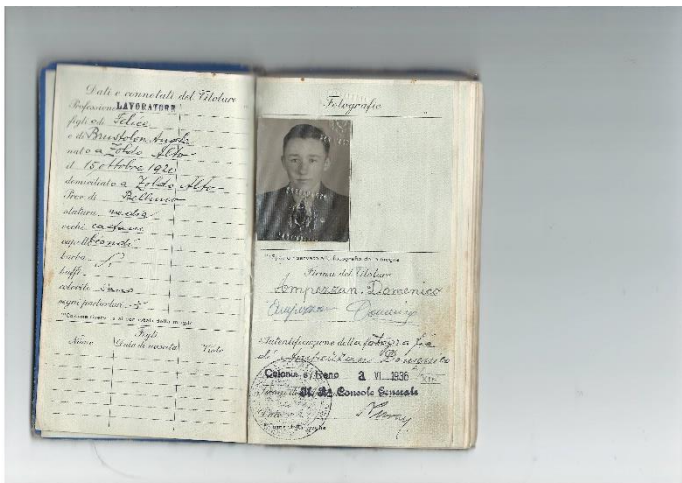 Dati e connotati del Titolare
Professione LAVORATORE
figlio di Felice
e di Brustolon Angela
nato a Zoldo Alto
il 15 ottobre 1920
domiciliato a Zoldo Alto
Prov. di Belluno
statura media
occhi castani
capelli biondi
barba
baffi
colorito sano
segni particolari
Figli
Nome Data di nascita Visto
Fotografie
Firma del Titolare
Ampezzan Domenico
Ampezzan
Autentificazione della fotografia
di Ampezzan Domenico
Colonia s/Reno VI 1936
Il R. Console Generale